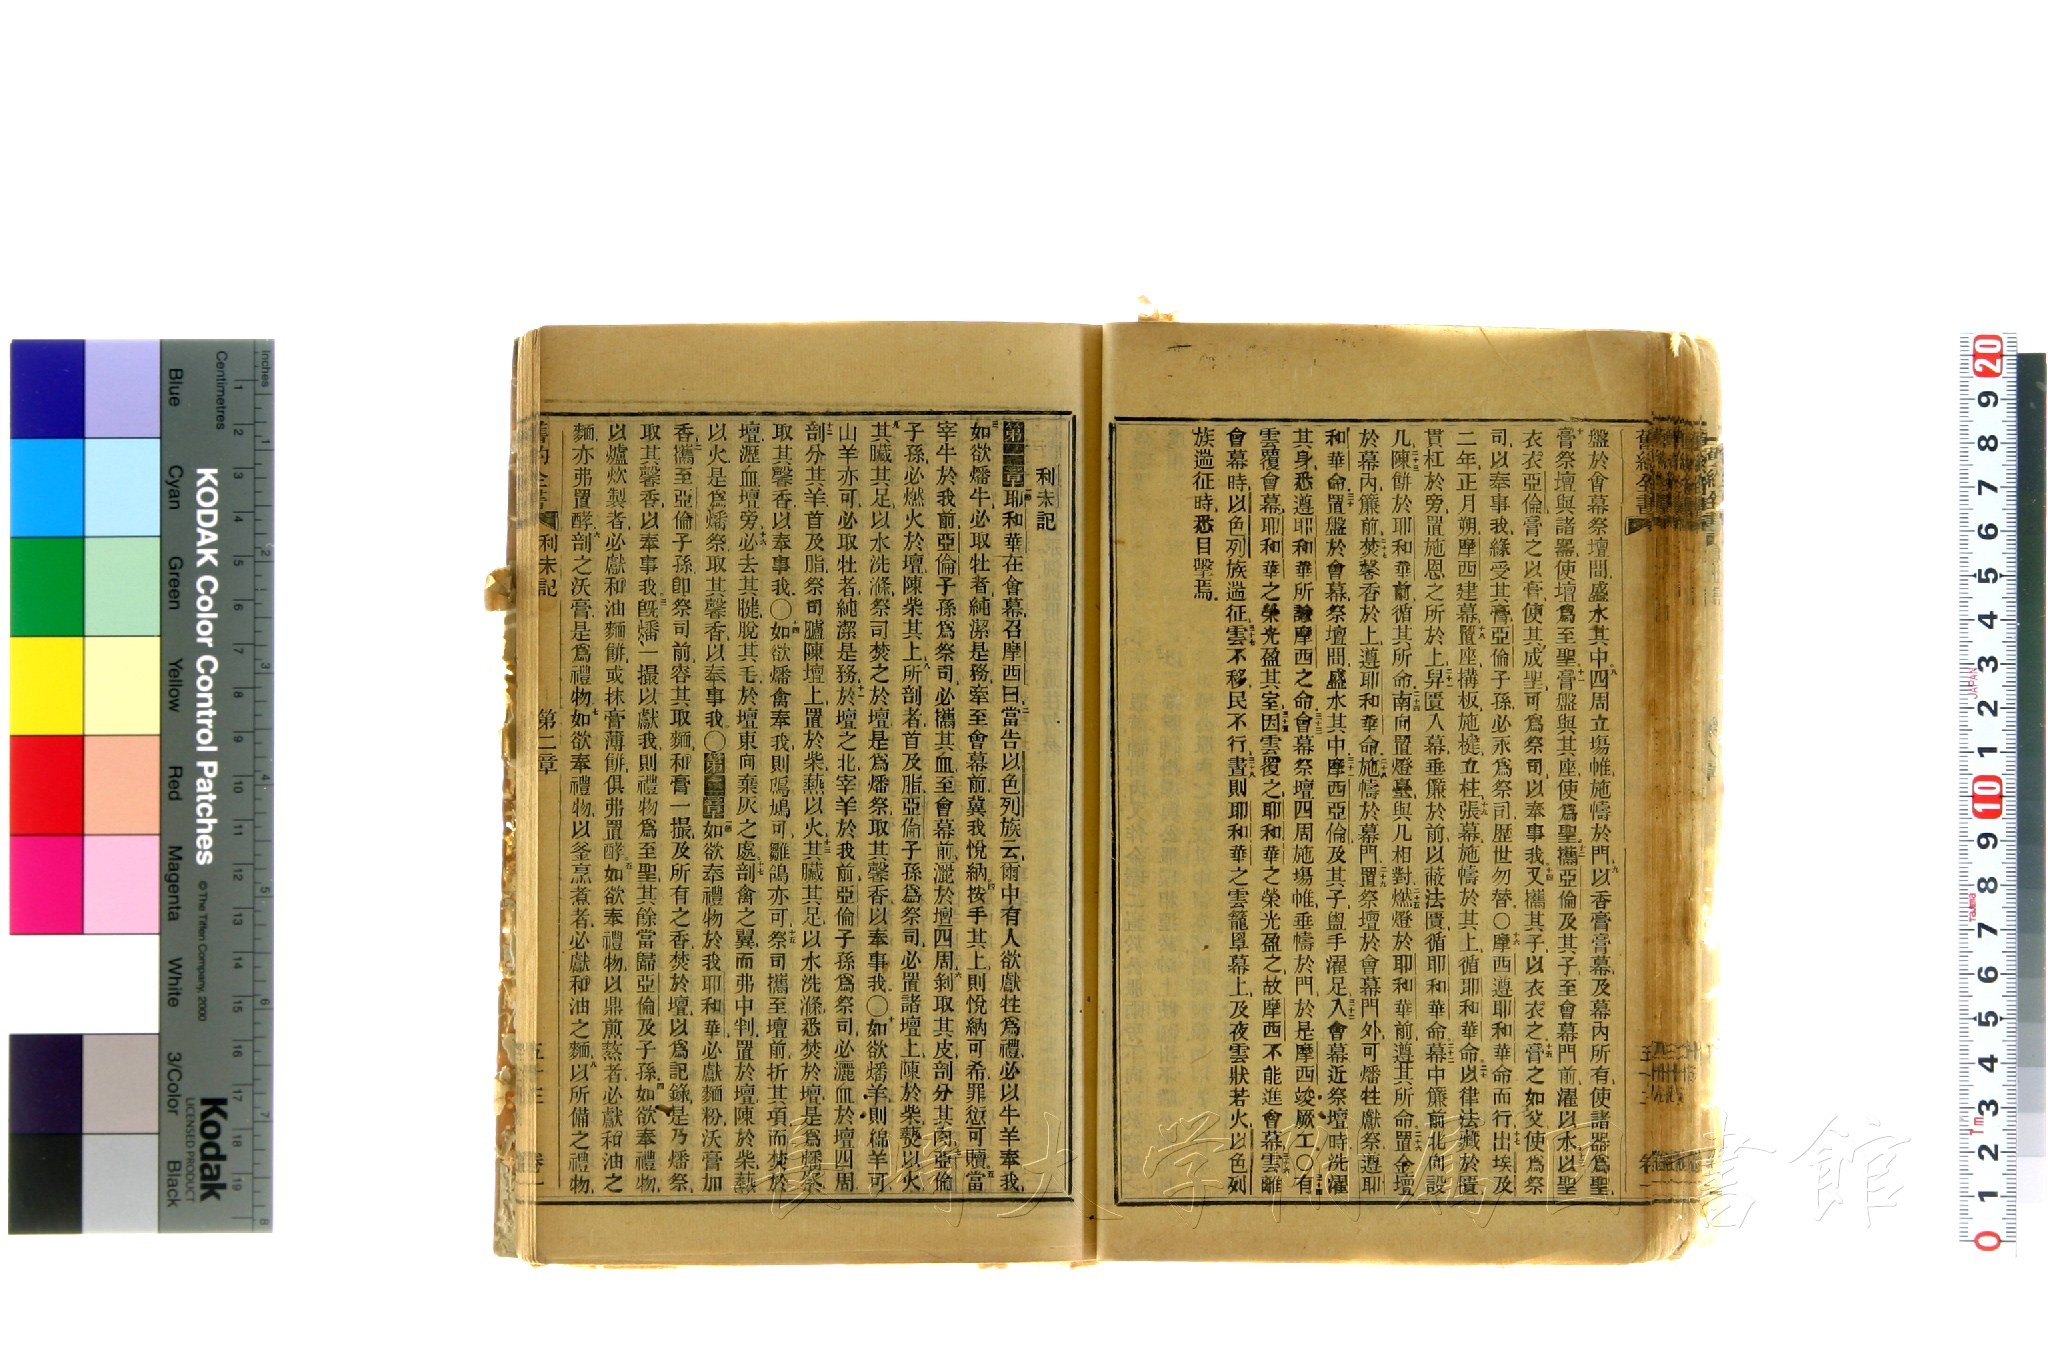 盤於會幕祭壇間盛水其中四周立場帷施幬於門以香膏膏幕及幕內所有使諸器爲聖
膏祭壇與諸器使壇爲至聖膏盤與其座使爲聖攜亞倫及其子至會幕門前濯以水以聖
衣衣亞倫膏之以膏使其成聖可爲祭司以奉事我又攜其子以衣衣之膏之如父使爲祭
司以奉事我緣受其膏亞倫子孫必永爲祭司歷世勿替〇摩西遵耶和華命而行出埃及
二年正月朔摩西建幕置座搆板施楗立柱張幕施幬於其上循耶和華命以律法藏於匱
貫杠於旁置施恩之所於上舁匱入幕垂簾於前以蔽法匱循耶和華命幕中簾前北向設
几陳餅於耶和華前循其所命南向置燈臺與几相對燃燈於耶和華前遵其所命置金壇
於幕內簾前焚馨香於上遵耶和華命施幬於幕門置祭壇於會幕門外可燔牲獻祭遵耶
和華命置盤於會幕祭壇間盛水其中摩西亞倫及其子盥手濯足入會幕近祭壇時洗濯
其身悉遵耶和華所諭摩西之命會幕祭壇四周施場帷垂幬於門於是摩西竣厥工〇有
雲覆會幕耶和華之榮光盈其室因雲覆之耶和華之榮光盈之故摩西不能進會幕雲離
會幕時以色列族遄征雲不移民不行晝則耶和華之雲籠罩幕上及夜雲狀若火以色列
族遄征時悉目擊焉
利未記
第一章耶和華在會幕召摩西曰當告以色列族云爾中有人欲獻牲爲禮必以牛羊奉我
如欲燔牛必取牡者純潔是務牽至會幕前冀我悅納按手其上則悅納可希罪愆可贖當
宰牛於我前亞倫子孫爲祭司必攜其血至會幕前灑於壇四周剝取其皮剖分其肉亞倫
子孫必燃火於壇陳柴其上所剖者首及脂亞倫子孫爲祭司必置諸壇上陳於柴爇以火
其臟其足以水洗滌祭司焚之於壇是爲燔祭取其馨香以奉事我〇如欲燔羊則綿羊可
山羊亦可必取牡者純潔是務於壇之北宰羊於我前亞倫子孫爲祭司必灑血於壇四周
剖分其羊首及脂祭司臚陳壇上置於柴爇以火其臟其足以水洗滌悉焚於壇是爲燔祭
取其馨香以奉事我〇如欲燔禽奉我則鳲鳩可雛鴿亦可祭司攜至壇前折其項而焚於
壇瀝血壇旁必去其膆脫其毛於壇東向棄灰之處剖禽之翼而弗中判置於壇陳於柴爇
以火是爲燔祭取其馨香以奉事我〇第二章如欲奉禮物於我耶和華必獻麵粉沃膏加
香攜至亞倫子孫卽祭司前容其取麵和膏一撮及所有之香焚於壇以爲記錄是乃燔祭
取其馨香以奉事我旣燔一撮以獻我則禮物爲至聖其餘當歸亞倫及子孫如欲奉禮物
以爐炊製者必獻和油麵餅或抹膏薄餅俱弗置酵如欲奉禮物以鼎煎熬者必獻和油之
麵亦弗置酵剖之沃膏是爲禮物如欲奉禮物以釜烹煮者必獻和油之麵以所備之禮物
利未記 第二章